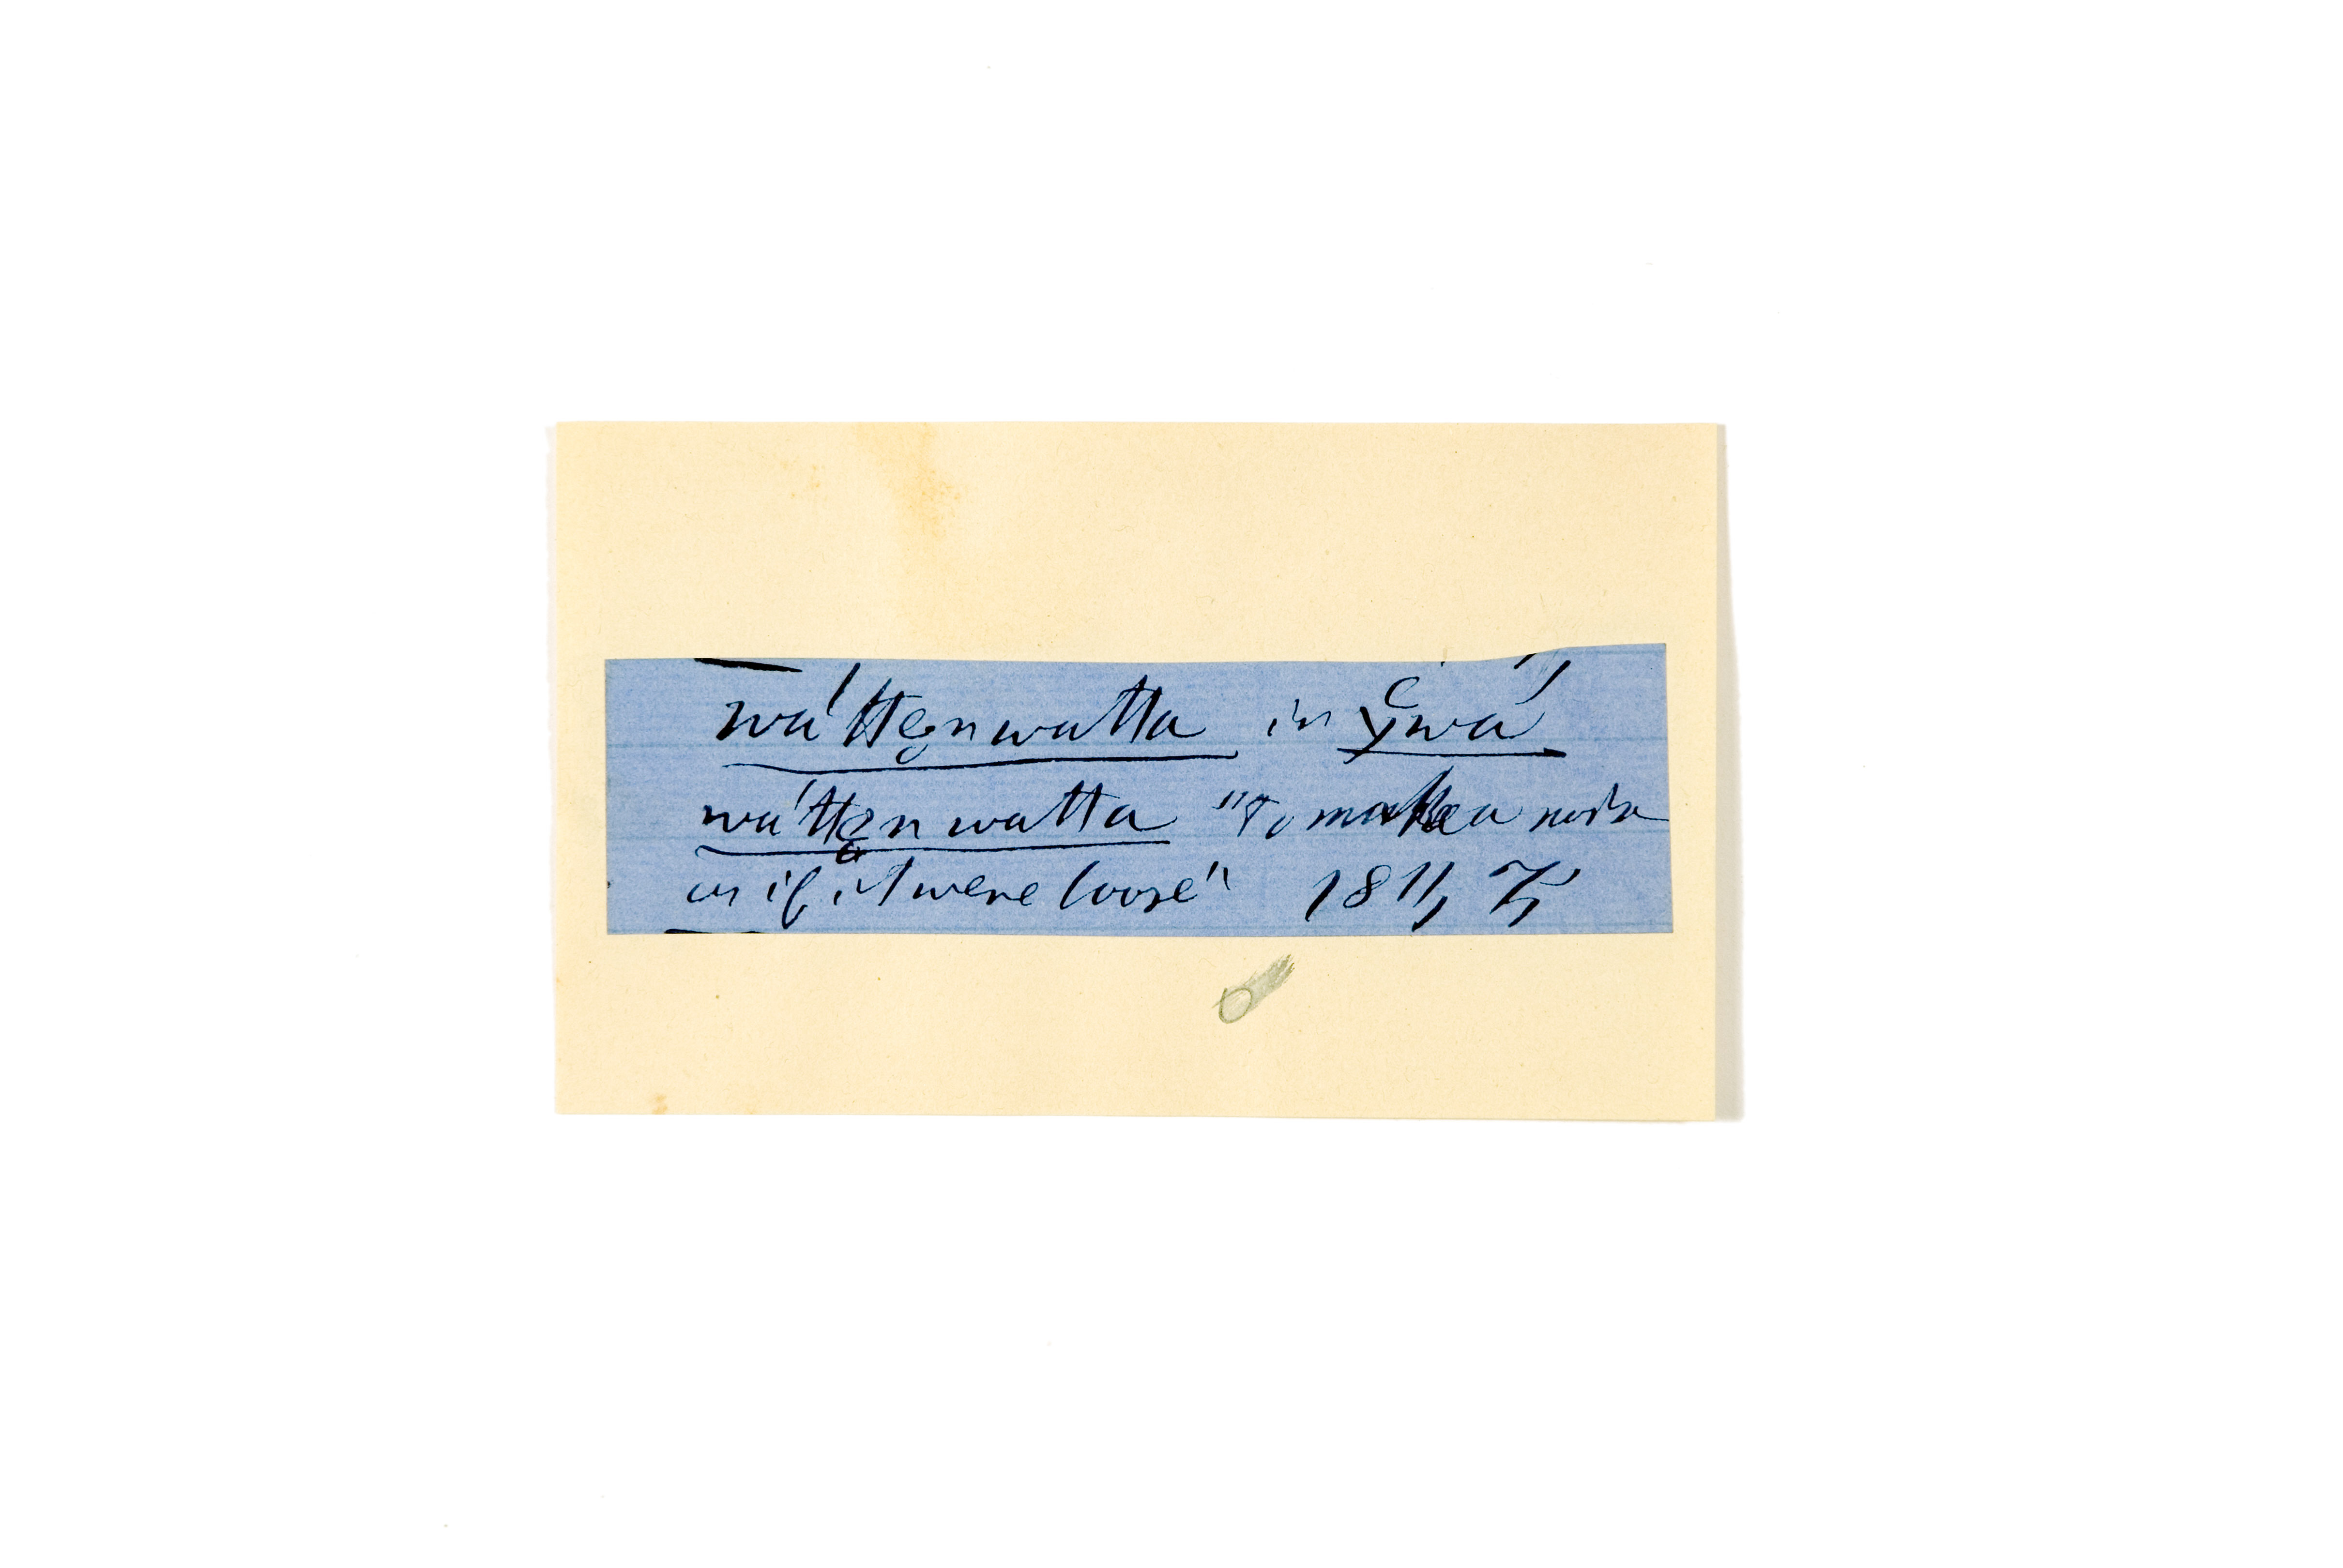 wa'ttęnwatta in y̆wá
wa'ttęnwatta "to make a noise
as if it were loose" 1811,